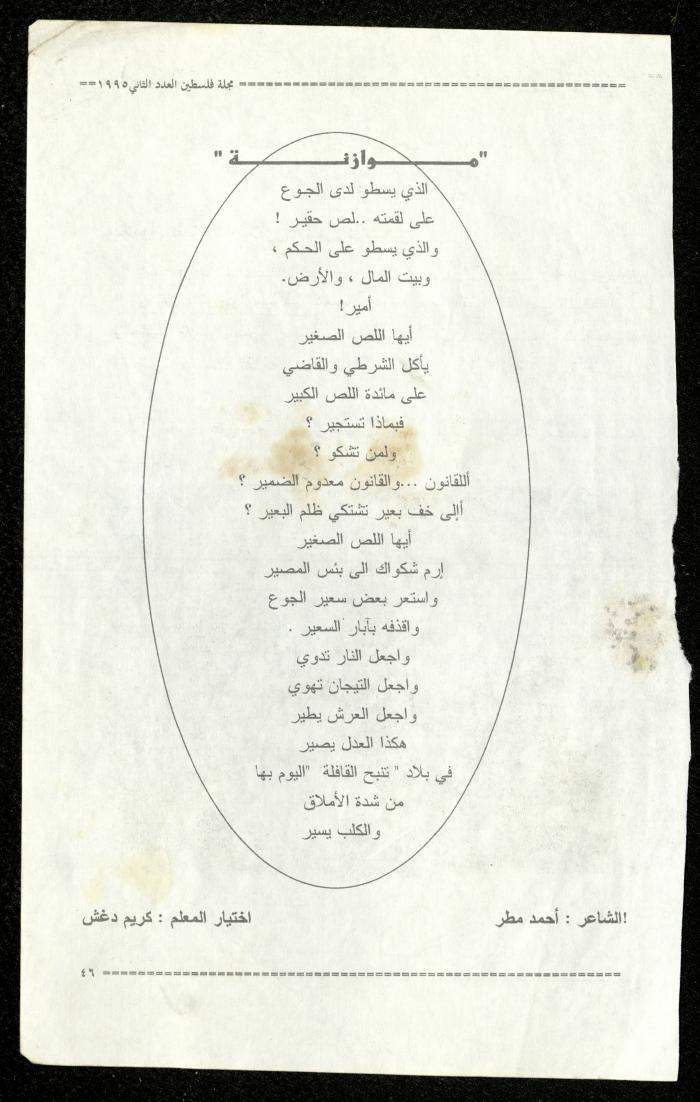 مجلة فلسطين العدد الثاني ١٩٩٥
"مـــوازنـــة"
الذي يسطو لدى الجوع
على لقمته ..لص حقير !
والذي يسطو على الحكم ،
وبيت المال ، والأرض.
أمير!
أيها اللص الصغير
يأكل الشرطي والقاضي
على مائدة اللص الكبير
فبماذا تستجير ؟
ولمن تشكو ؟
أللقانون ...والقانون معدوم الضمير ؟
أإلى خف بعير تشتكي ظلم البعير ؟
أيها اللص الصغير
إرم شكواك الى بئس المصير
واستعر بعض سعير الجوع
واقذفه بآبار السعير .
واجعل النار تدوي
واجعل التيجان تهوي
واجعل العرش يطير
هكذا العدل يصير
في بلاد " تنبح القافلة "اليوم بها
من شدة الأملاق
والكلب يسير
!الشاعر : أحمد مطر
اختيار المعلم : كريم دغش
٤٦